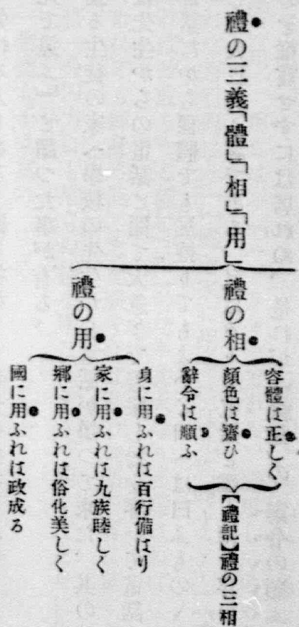 禮の三義「體」「相」「用」
禮の相
容體は正しく
顏色は齋ひ
辭令は順ふ
【禮記】禮の三相
禮の用
身に用ふれば百行備はり
家に用ふれば九族睦しく
鄕に用ふれば俗化美しく
國に用ふれば政成る